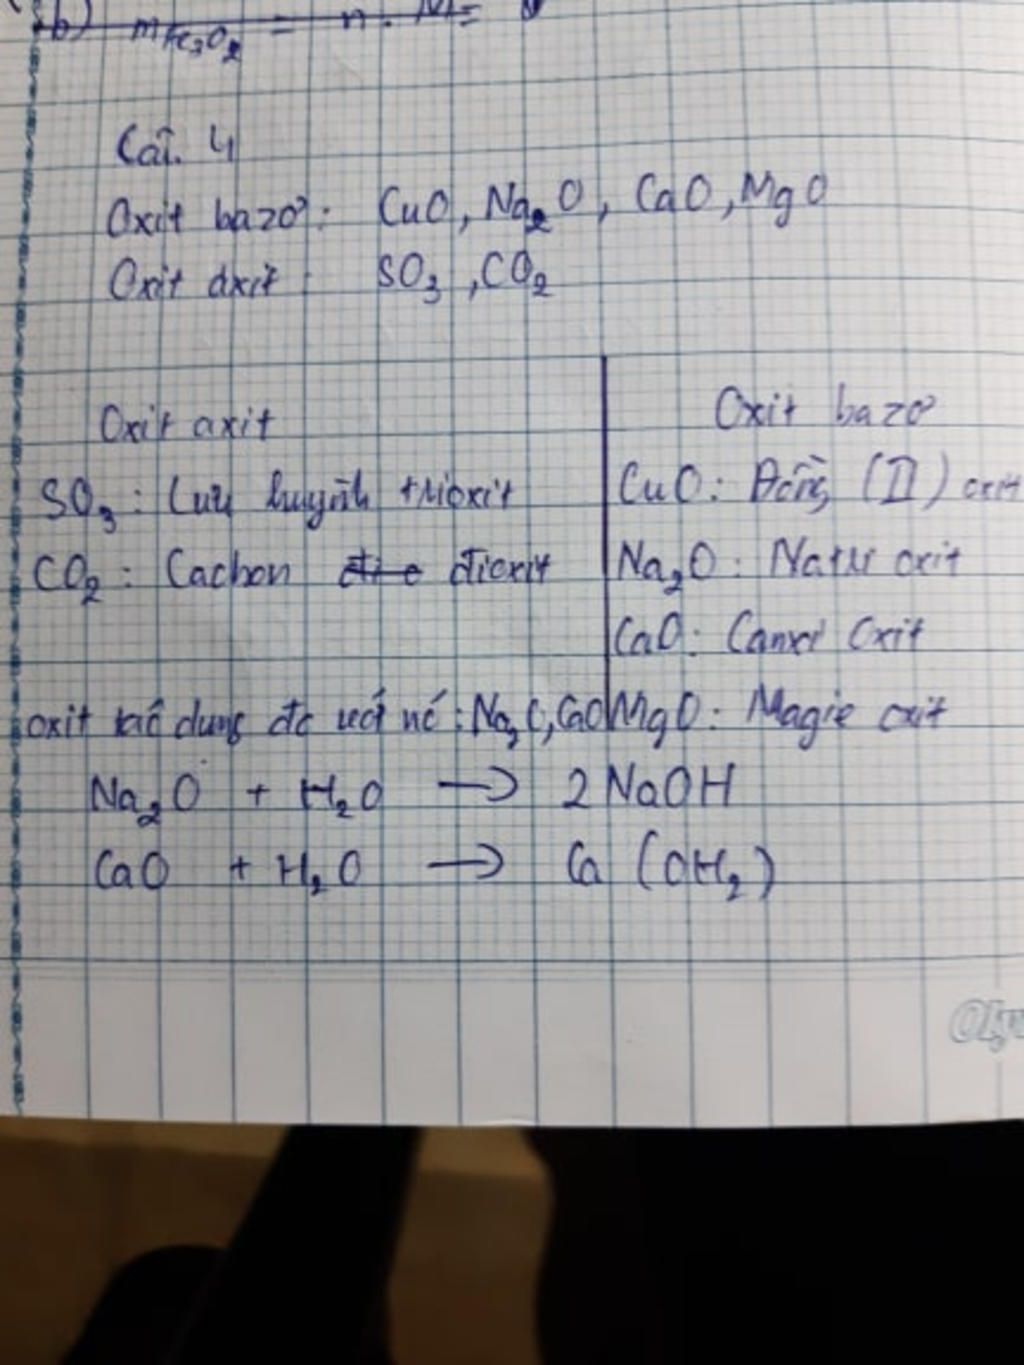 b) mFe₃O₂ = n . M =
Câi. 4
Oxit bazơ: CuO, Na₂O, CaO, MgO
Oxit axit : SO₃, CO₂
Oxit axit
SO₃ : Lưu huỳnh trioxit
CO₂ : Cacbon đioxit
Oxit bazơ
CuO: Đồng (II) oxit
Na₂O: Natri oxit
CaO: Canxi Oxit
MgO: Magie oxit
oxit tác dụng đc với nc: Na₂O, CaO
Na₂O + H₂O → 2 NaOH
CaO + H₂O → Ca (OH₂)